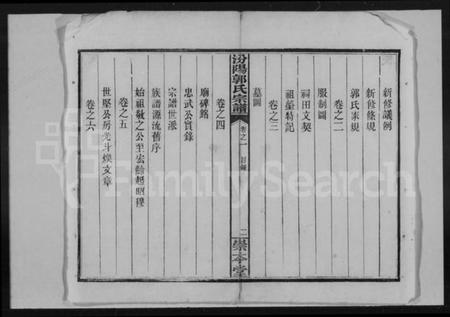 新修議例
新修條規
郭氏家規
卷之二
服制圖
祠田文契
祖塋特記
卷之三
墓圖
汾陽郭氏宗譜
卷之一
目錄
二
崇本堂
卷之四
廟碑銘
忠武公實錄
宗譜世派
族譜源流舊序
始祖敬之公至宏餘起昭穆
卷之五
世堅公房光斗煥文章
卷之六
FamilySearch